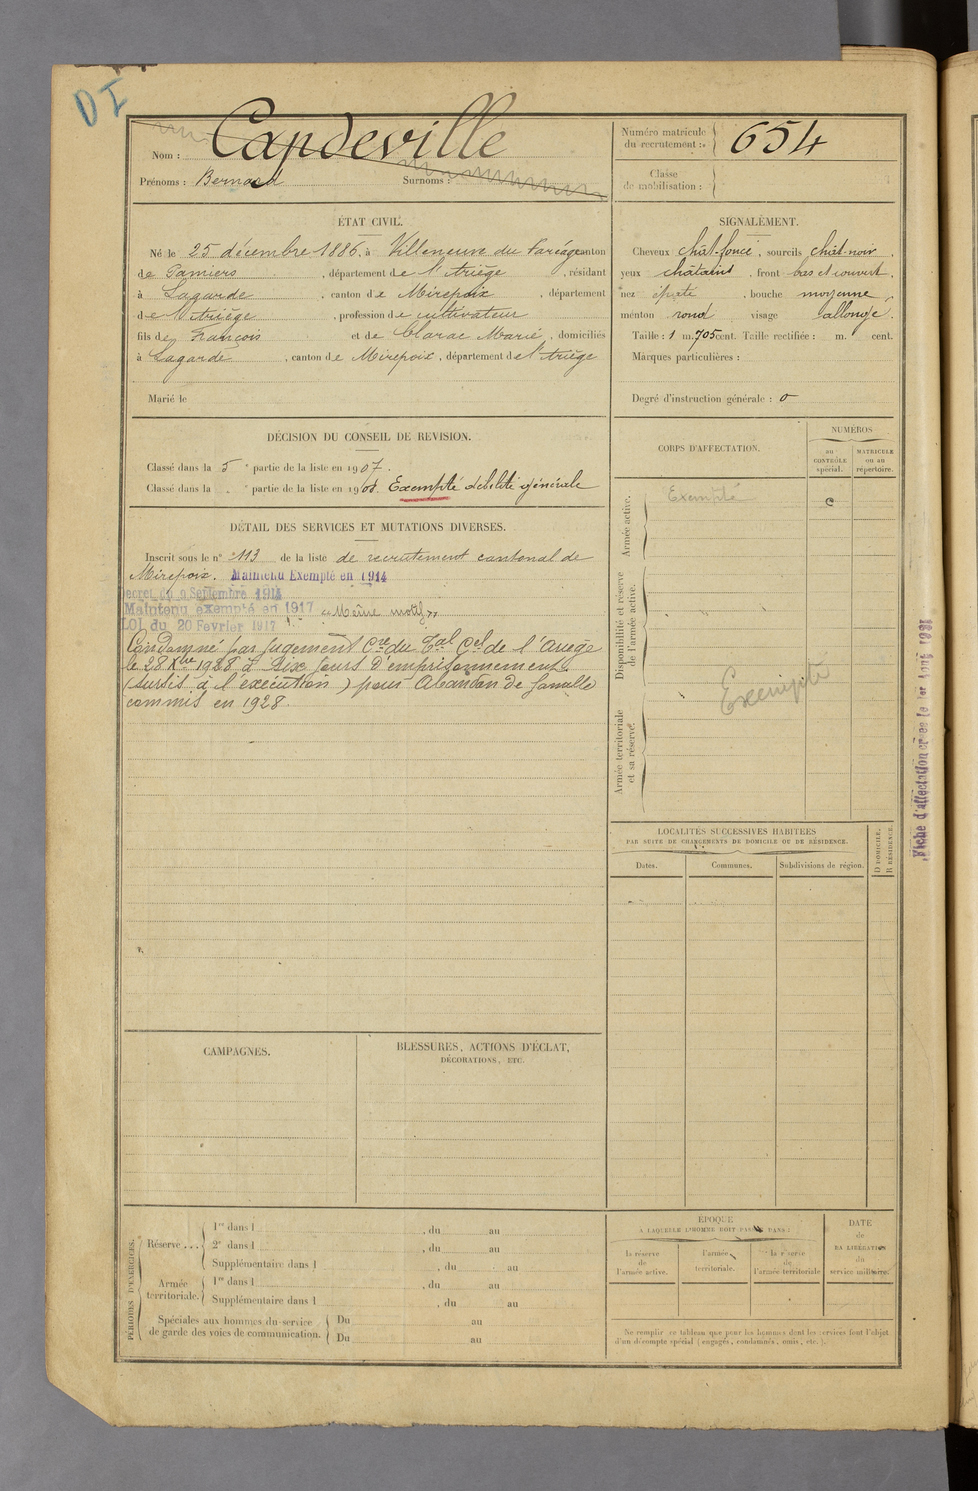 DI
Nom : Capdeville
Prénoms : Bernard Surnoms :
Numéro matricule du recrutement : 654
Classe de mobilisation :
ÉTAT CIVIL.
Né le 25 décembre 1886, à Villeneuve du Paréage canton
de Pamiers, département de l'Ariège, résidant
à Lagarde, canton de Mirepoix, département
de l'Ariège, profession de cultivateur
fils de François et de Clarac Marie, domiciliés
à Lagarde, canton de Mirepoix, département de l'Ariège
Marié le
SIGNALEMENT.
Cheveux chât-foncé, sourcils chât-noir,
yeux châtains, front bas et couvert,
nez épaté, bouche moyenne,
menton rond visage allongé.
Taille : 1 m. 705 cent. Taille rectifiée : m. cent.
Marques particulières :
Degré d'instruction générale : 0
DÉCISION DU CONSEIL DE REVISION.
Classé dans la 5e partie de la liste en 1907.
Classé dans la e partie de la liste en 1908. Exempté débilité générale
DÉTAIL DES SERVICES ET MUTATIONS DIVERSES.
Inscrit sous le n° 113 de la liste de recrutement cantonal de
Mirepoix. Maintenu Exempté en 1914
Décret du 9 Septembre 1914
Maintenu exempté en 1917 « Même motif »
LOI du 20 Février 1917
Condamné par Jugement Cre du Tal Cel de l'Ariège
le 28 Xbre 1928 à Six jours d'emprisonnement
(sursis à l'exécution) pour Abandon de famille
commis en 1928.
CORPS D'AFFECTATION.
NUMÉROS
au CONTRÔLE spécial.
MATRICULE ou au répertoire.
Armée active.
Exempté
Disponibilité et réserve de l'armée active.
Exempté
Armée territoriale et sa réserve.
Fiche d'affectation créée le 1er Août 1921
LOCALITÉS SUCCESSIVES HABITÉES
PAR SUITE DE CHANGEMENTS DE DOMICILE OU DE RÉSIDENCE.
Dates. Communes. Subdivisions de région.
D DOMICILE. R RÉSIDENCE.
CAMPAGNES.
BLESSURES, ACTIONS D'ÉCLAT,
DÉCORATIONS, ETC.
PÉRIODES D'EXERCICES.
Réserve ...
1re dans l , du au
2e dans l , du au
Supplémentaire dans l , du au
Armée territoriale.
1re dans l , du au
Supplémentaire dans l , du au
Spéciales aux hommes du service
de garde des voies de communication.
Du au
Du au
ÉPOQUE
À LAQUELLE L'HOMME DOIT PASSER DANS :
la réserve de l'armée active.
l'armée territoriale.
la réserve de l'armée territoriale
DATE de LA LIBÉRATION du service militaire.
Ne remplir ce tableau que pour les hommes dont les services font l'objet
d'un décompte spécial (engagés, condamnés, omis, etc.).